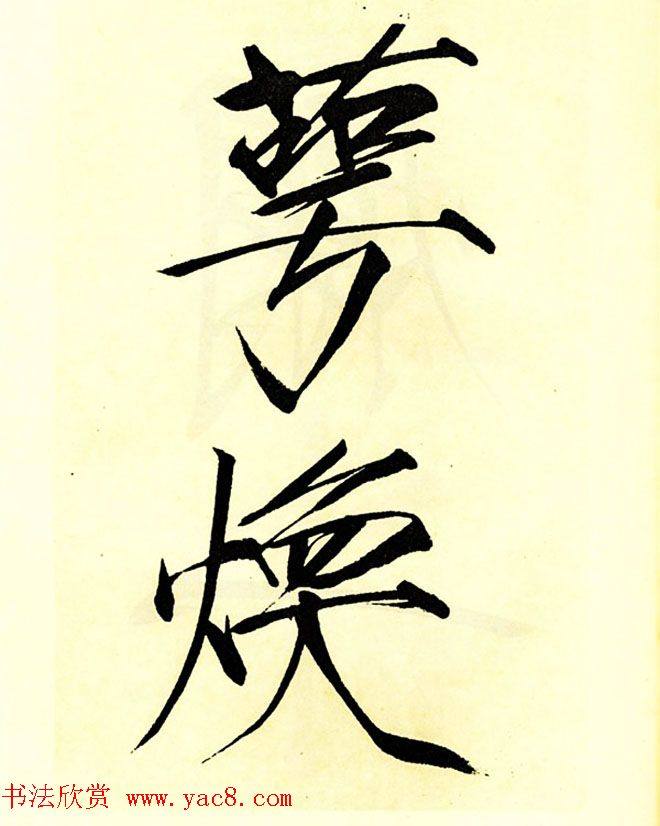 萼
煥
书法欣赏 www.yac8.com